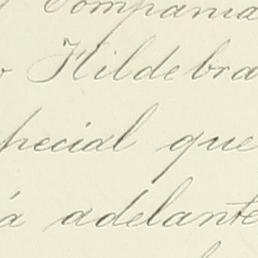 Compania
Hildebra
pecial que
á adelante